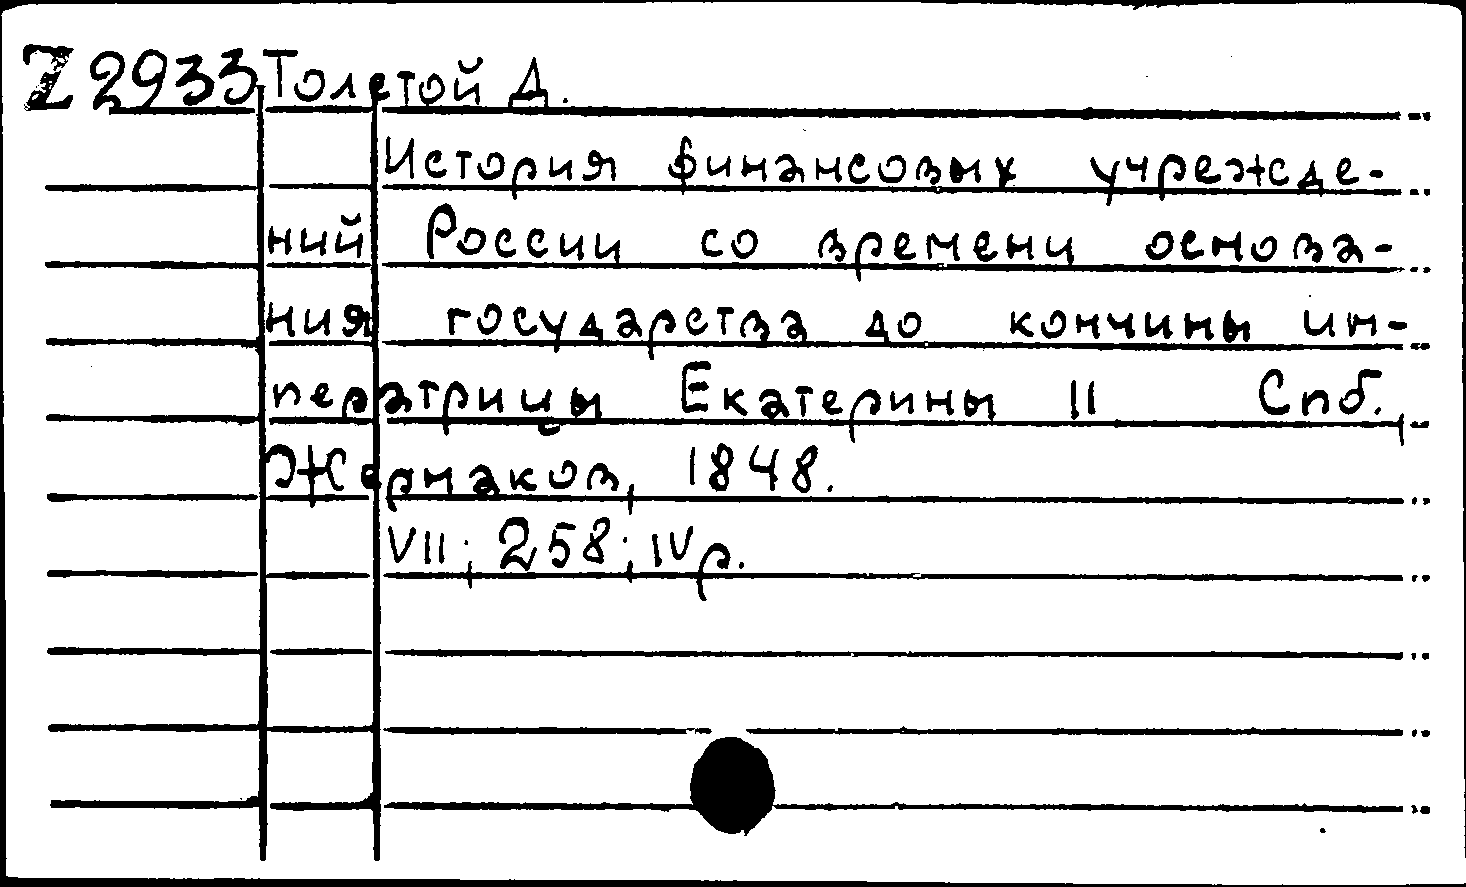 Z 2933 Толстой Д.
История финансовых учрежде-
ний России со времени основа-
ния государства до кончины им-
ператрицы Екатерины II Спб.,
Жернаков, 1848.
VII; 258; IV p.